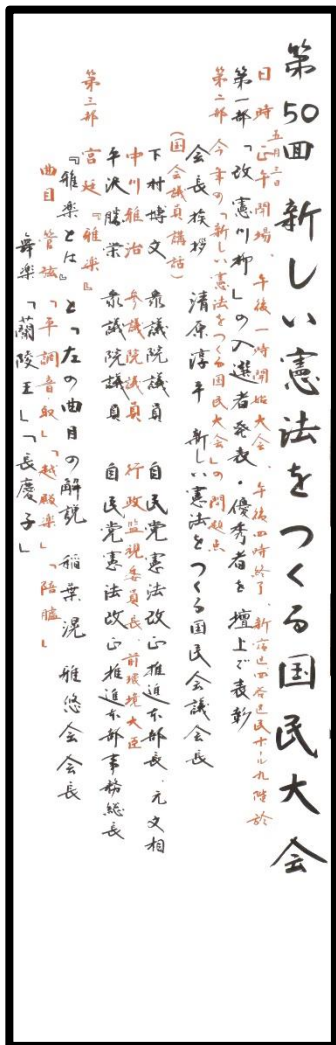 第50回 新しい憲法をつくる国民大会
日時 五月三日 正午開場、午後一時開始大会、午後四時終了、新宿区四谷区民ホール九階於
第一部「改憲川柳」の入選者発表・優秀者を壇上で表彰
第二部 今年の「新しい憲法をつくる国民大会」の問題点
会長挨拶 清原淳平 新しい憲法をつくる国民会議会長
(国会議員講話)
下村博文 衆議院議員 自民党憲法改正推進本部長、元文相
中川雅治 参議院議員 行政監視委員長、前環境大臣
平沢勝栄 衆議院議員 自民党憲法改正推進本部事務総長
第三部 宮廷『雅楽』
『雅楽とは』と「左の曲目の解説 稲葉滉 雅悠会会長
曲目 管絃「平調音取」「越殿楽」「陪臚」
舞楽「蘭陵王」「長慶子」